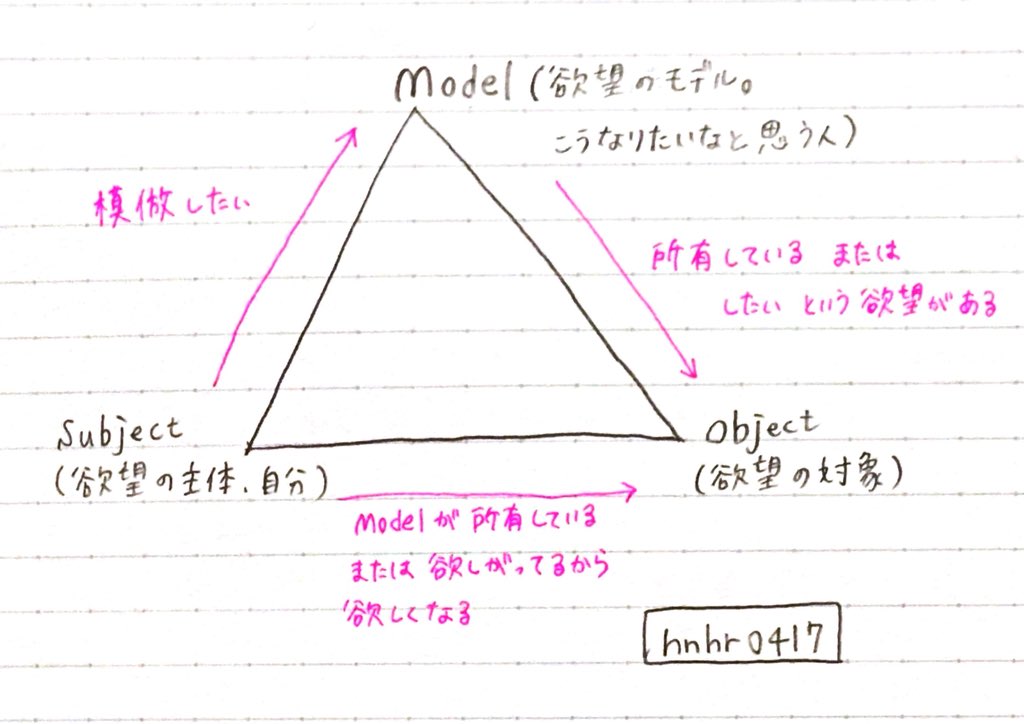 Model (欲望のモデル。
こうなりたいなと思う人)
模倣したい
所有している または
したい という 欲望がある
Subject
(欲望の主体、自分)
Object
(欲望の対象)
Modelが 所有している
または 欲しがってるから
欲しくなる
hnhr0417